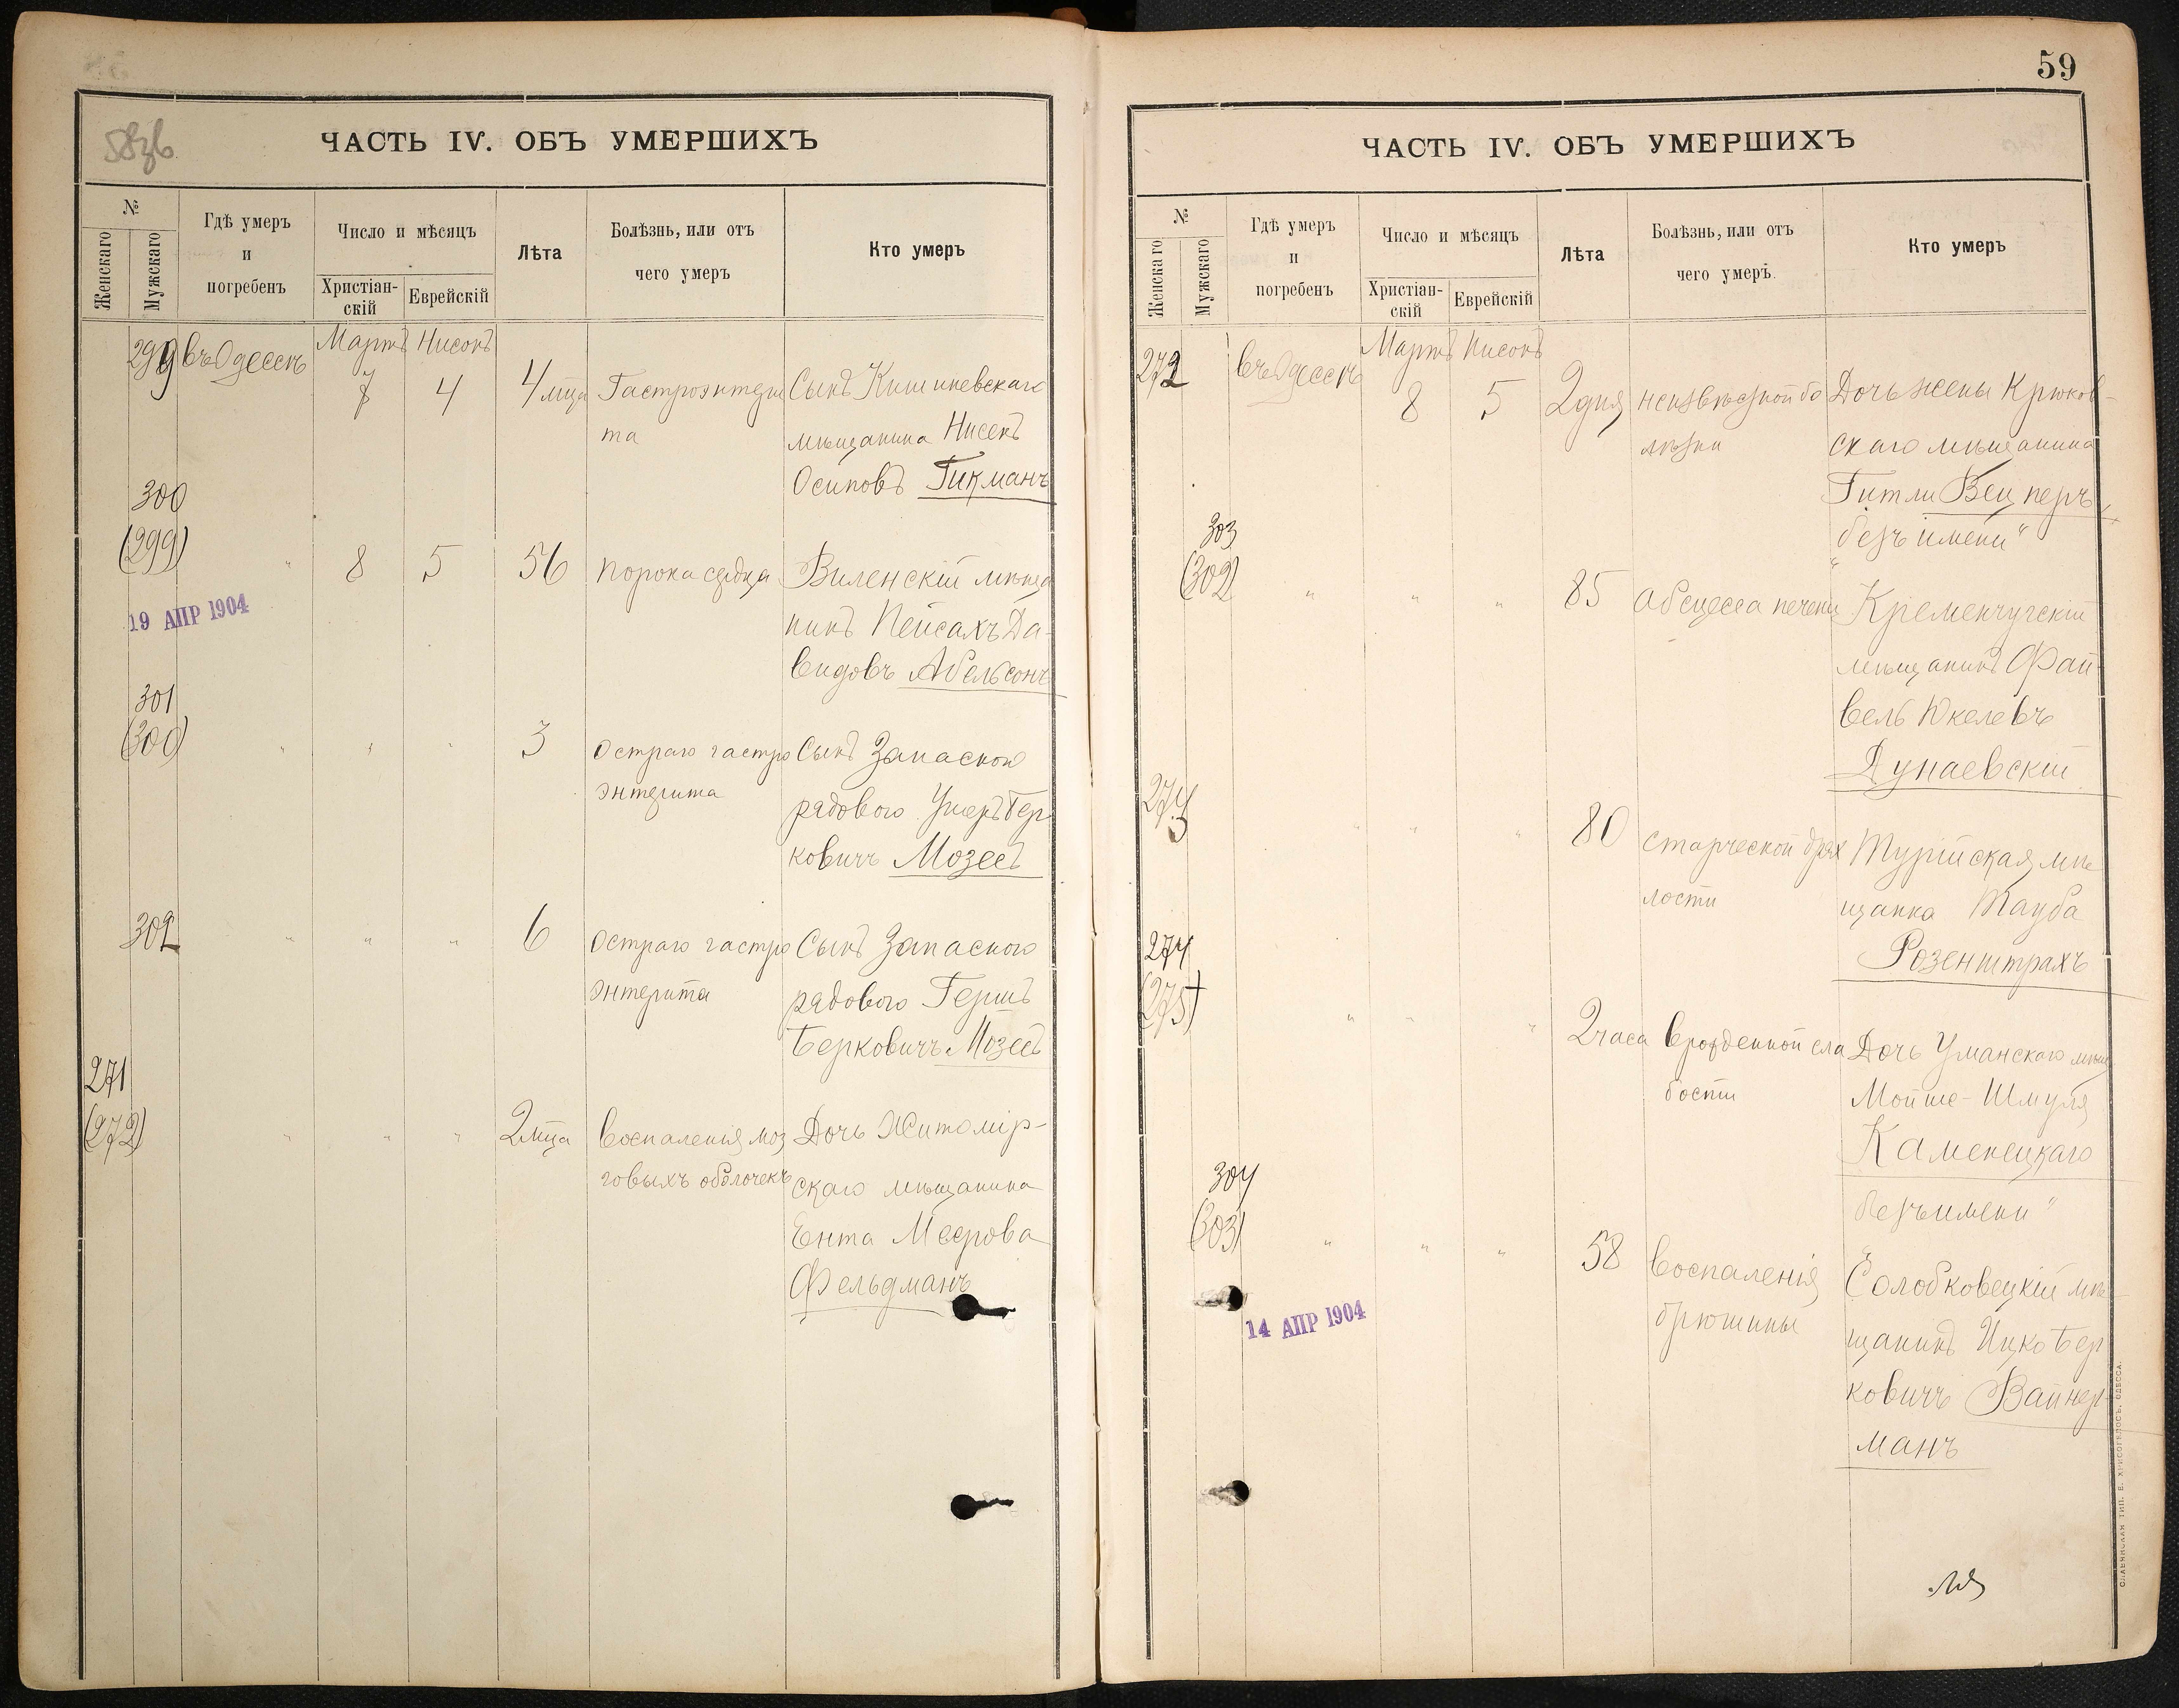 58зв
ЧАСТЬ IV. ОБЪ УМЕРШИХЪ
№
Женскаго
Мужскаго
Гдѣ умеръ
и
погребенъ
Число и мѣсяцъ
Христіан-
скій
Еврейскій
Лѣта
Болѣзнь, или отъ
чего умеръ
Кто умеръ
299 въ Одессѣ Мартъ Нисонъ
7 4 4 мца Гастроэнтери Сынъ Кишиневскаго
та мѣщанина Нисекъ
Осиповъ Гикманъ
300
(299) " 8 5 56 порока сердца Виленскій мѣща
нинъ Пейсахъ Да-
19 АПР 1904
видовъ Абельсонъ
301
(300) " " " 3 Остраго гастро Сынъ Запасного
энтерита рядового Ушеръ Бер
ковичъ Мозесъ
302 " " " 6 Остраго гастро Сынъ Запасного
энтерита рядового Гершъ
Берковичъ Мозесъ
271
(272) " " " 2 мца Воспаленія моз Дочь Житомір-
говыхъ оболочекъ скаго мѣщанина
Ента Меерова
Фельдманъ
59
ЧАСТЬ IV. ОБЪ УМЕРШИХЪ
№
Женскаго
Мужскаго
Гдѣ умеръ
и
погребенъ
Число и мѣсяцъ
Христіан-
скій
Еврейскій
Лѣта
Болѣзнь, или отъ
чего умеръ.
Кто умеръ
272 въ Одессѣ Мартъ Нисонъ
8 5 2 дня неизвѣстной бо Дочь жены Крюков-
лѣзни скаго мѣщанина
Гитли Вецперъ
"безъ имени"
303
(302) " " " 85 абсцесса печени Кременчугскій
мѣщанинъ Фай
вель Юкелевъ
Дунаевскій
273 " " " 80 старческой дрях Турійская мѣ
лости щанка Тауба
Розенштрахъ
274
(275) " " " 2 часа врожденной сла Дочь Уманскаго мѣщ
бости Мойше-Шмуля
Каменецкаго
"безъ имени"
304
(303) " " " 58 воспаленія Солобковецкій мѣ-
брюшины щанинъ Ицко Бер
14 АПР 1904
ковичъ Вайнер
манъ
СЛАВЯНСКАЯ ТИП. Е. ХРИСОГЕЛОСЪ, ОДЕССА.